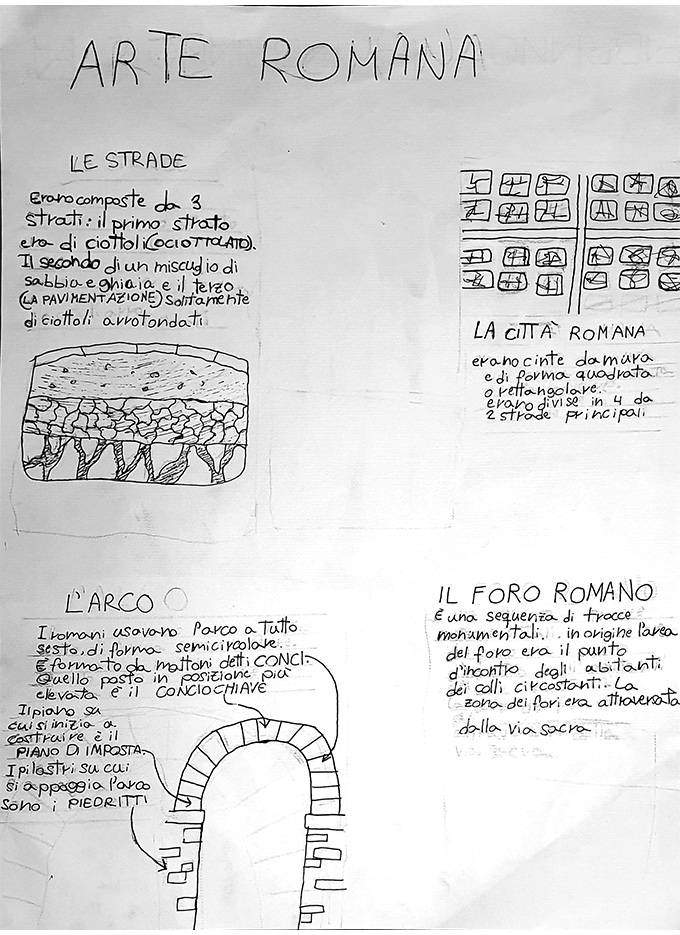 ARTE ROMANA
LE STRADE
Erano composte da 3
strati: il primo strato
era di ciottoli (O CIOTTOLATO).
Il secondo di un miscuglio di
sabbia e ghiaia e il terzo
(LA PAVIMENTAZIONE) solitamente
di ciottoli arrotondati
LA CITTÀ ROMANA
erano cinte da mura
e di forma quadrata
o rettangolare.
erano divise in 4 da
2 strade principali
L'ARCO
I romani usavano l'arco a tutto
sesto, di forma semicircolare.
È formato da mattoni detti CONCI.
Quello posto in posizione più
elevata è il CONCIO CHIAVE
Il piano su
cui si inizia a
costruire è il
PIANO DI IMPOSTA.
I pilastri su cui
si appoggia l'arco
sono i PIEDRITTI
IL FORO ROMANO
È una sequenza di tracce
monumentali.. in origine l'area
del foro era il punto
d'incontro degli abitanti
dei colli circostanti. La
zona dei fori era attraversata
dalla via sacra